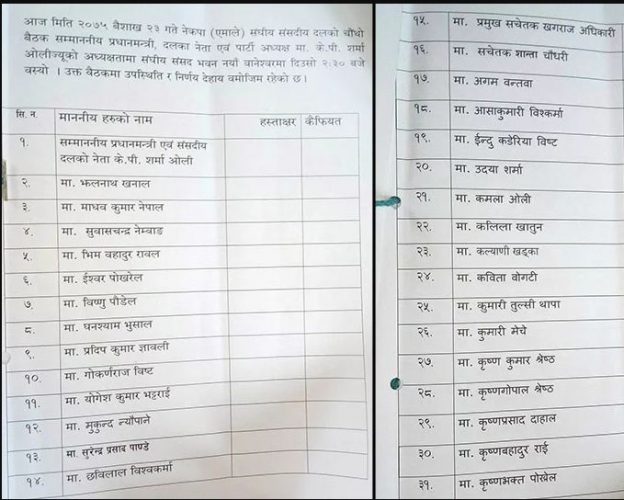 आज मिति २०७५ बैशाख २३ गते नेकपा (एमाले) संघीय संसदीय दलको चौथो
बैठक सम्माननीय प्रधानमन्त्री, दलका नेता एवं पार्टी अध्यक्ष मा. के.पी. शर्मा
ओलीज्यूको अध्यक्षतामा संघीय संसद भवन नयाँ वानेश्वरमा दिउसो २:३० बजे
वस्यो । उक्त बैठकमा उपस्थिति र निर्णय देहाय वमोजिम रहेको छ।
सि. न. माननीय हरुको नाम हस्ताक्षर कैफियत
१. सम्माननीय प्रधानमन्त्री एवं संसदीय
दलको नेता के.पी. शर्मा ओली
२. मा. झलनाथ खनाल
३. मा. माधव कुमार नेपाल
४. मा. सुवासचन्द्र नेम्वाङ
५. मा. भिम वहादुर रावल
६. मा. ईश्वर पोखरेल
७. मा. विष्णु पौडेल
८. मा. घनश्याम भुसाल
९. मा. प्रदिप कुमार ज्ञावली
१०. मा. गोकर्णराज विष्ट
११. मा. योगेश कुमार भट्टराई
१२. मा. मुकुन्द न्यौपाने
१३. मा. सुरेन्द्र प्रसाद पाण्डे
१४. मा. छविलाल विश्वकर्मा
१५. मा. प्रमुख सचेतक खगराज अधिकारी
१६. मा. सचेतक शान्ता चौधरी
१७. मा. अगम वन्तवा
१८. मा. आसाकुमारी विश्कर्मा
१९. मा. ईन्दु कडेरिया विष्ट
२०. मा. उदया शर्मा
२१. मा. कमला ओली
२२. मा. कलिला खातुन
२३. मा. कल्याणी खड्का
२४. मा. कविता वोगटी
२५. मा. कुमारी तुल्सी थापा
२६. मा. कुमारी मेचे
२७. मा. कृष्ण कुमार श्रेष्ठ
२८. मा. कृष्णगोपाल श्रेष्ठ
२९. मा. कृष्णप्रसाद दाहाल
३०. मा. कृष्णबहादुर राई
३१. मा. कृष्णभक्त पोखेल